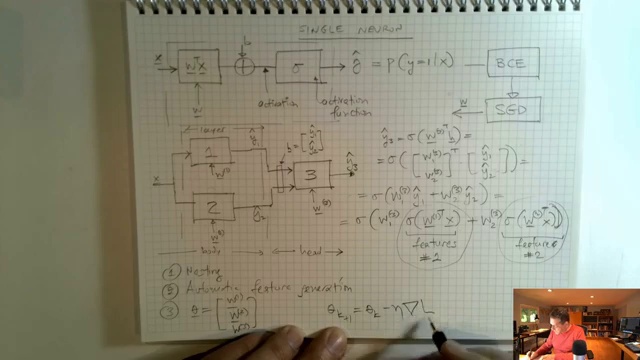 SINGLE NEURON
x
wᵀx
b
+
σ
ŷ = p(y=1|x)
BCE
w
activation
activation function
w
SGD
layer
ŷ₁
b = [ŷ₁ ŷ₂]
1
w⁽¹⁾
x
3
ŷ₃
w⁽³⁾
2
ŷ₂
w⁽²⁾
body
head
ŷ₃ = σ(w⁽³⁾ᵀ b) =
= σ([w₁⁽³⁾ w₂⁽³⁾]ᵀ [ŷ₁ ŷ₂]) =
= σ(w₁⁽³⁾ ŷ₁ + w₂⁽³⁾ ŷ₂) =
= σ(w₁⁽³⁾ σ(w⁽¹⁾ᵀx) + w₂⁽³⁾ σ(w⁽²⁾ᵀx))
features #2
features #2
① Nesting
② Automatic feature generation
③ θ = [w⁽¹⁾ w⁽²⁾ w⁽³⁾]
θₖ₊₁ = θₖ − η∇L